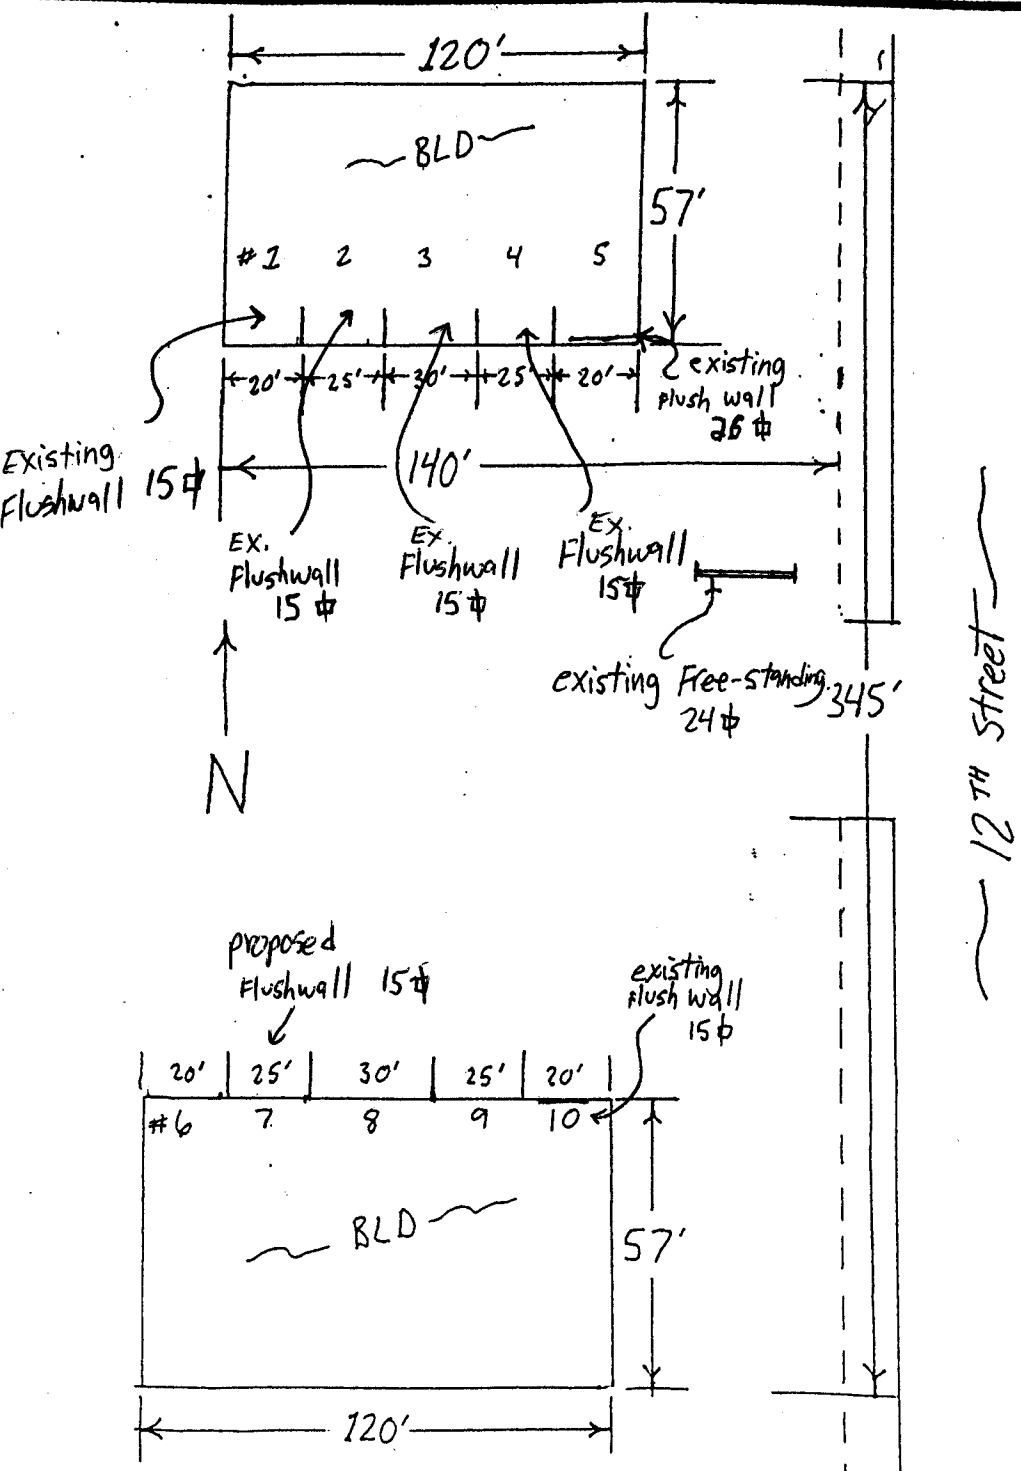 120'
BLD
57'
#1 2 3 4 5
20' 25' 30' 25' 20'
existing
flush wall
26 ⌷
Existing
Flushwall 15 ⌷
140'
Ex.
Flushwall
15 ⌷
Ex.
Flushwall
15 ⌷
Ex.
Flushwall
15 ⌷
existing Free-standing
24 ⌷
345'
N
12TH Street
proposed
Flushwall 15 ⌷
existing
flush wall
15 ⌷
20' 25' 30' 25' 20'
#6 7 8 9 10
BLD
57'
120'